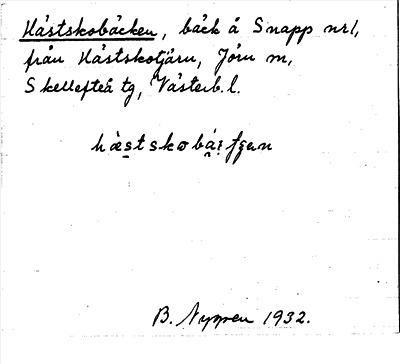 Hästskobäcken, bäck å Snapp nr 1,
från Hästskotjärn, Jörn m,
Skellefteå tg, Västerb. l.
B. Nyman 1932.